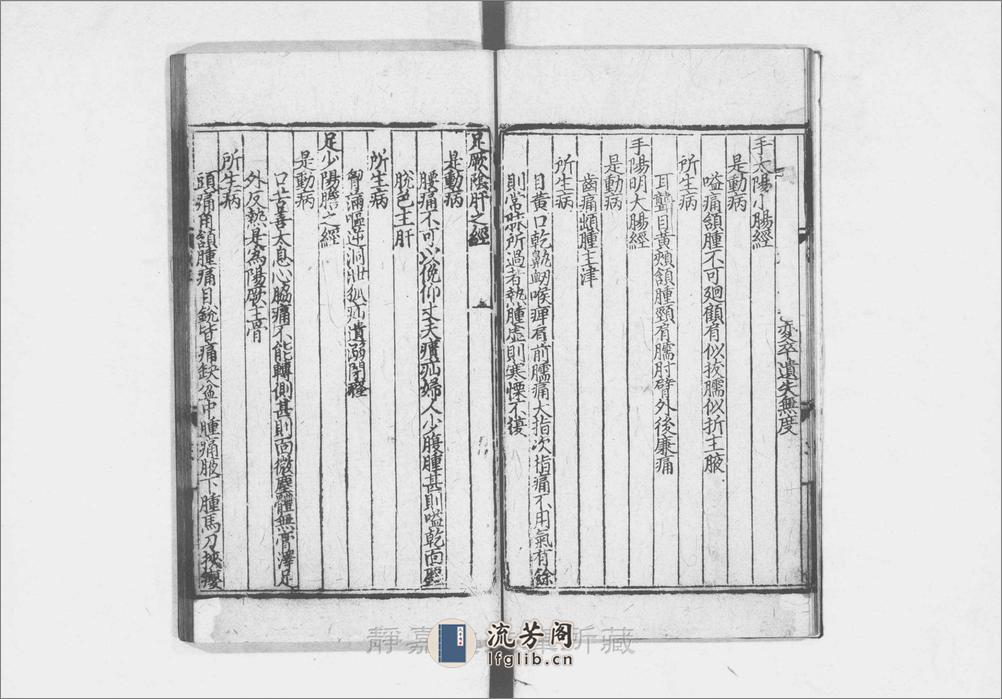 変卒遺失無度
手太陽小腸經
是動病
嗌痛頷腫不可廻顧肩似拔臑似折主腋
所生病
耳聾目黃頰頷腫頸肩臑肘臂外後廉痛
手陽明大腸經
是動病
齒痛䪼腫主津
所生病
目黃口乾鼽衂喉痺肩前臑痛大指次指痛不用氣有餘
則當脉所過者熱腫虛則寒慄不復
足厥陰肝之經
是動病
腰痛不可以俛仰丈夫㿉疝婦人少腹腫甚則嗌乾面塵
脫色主肝
所生病
胷滿嘔逆洞泄狐疝遺溺閉癃
足少陽膽之經
是動病
口苦善太息心脇痛不能轉側甚則面微塵體無膏澤足
外反熱是為陽厥主骨
所生病
頭痛角頷腫痛目銳眥痛缺盆中腫痛腋下腫馬刀挾癭
靜嘉 所藏
流芳阁
lfglib.cn